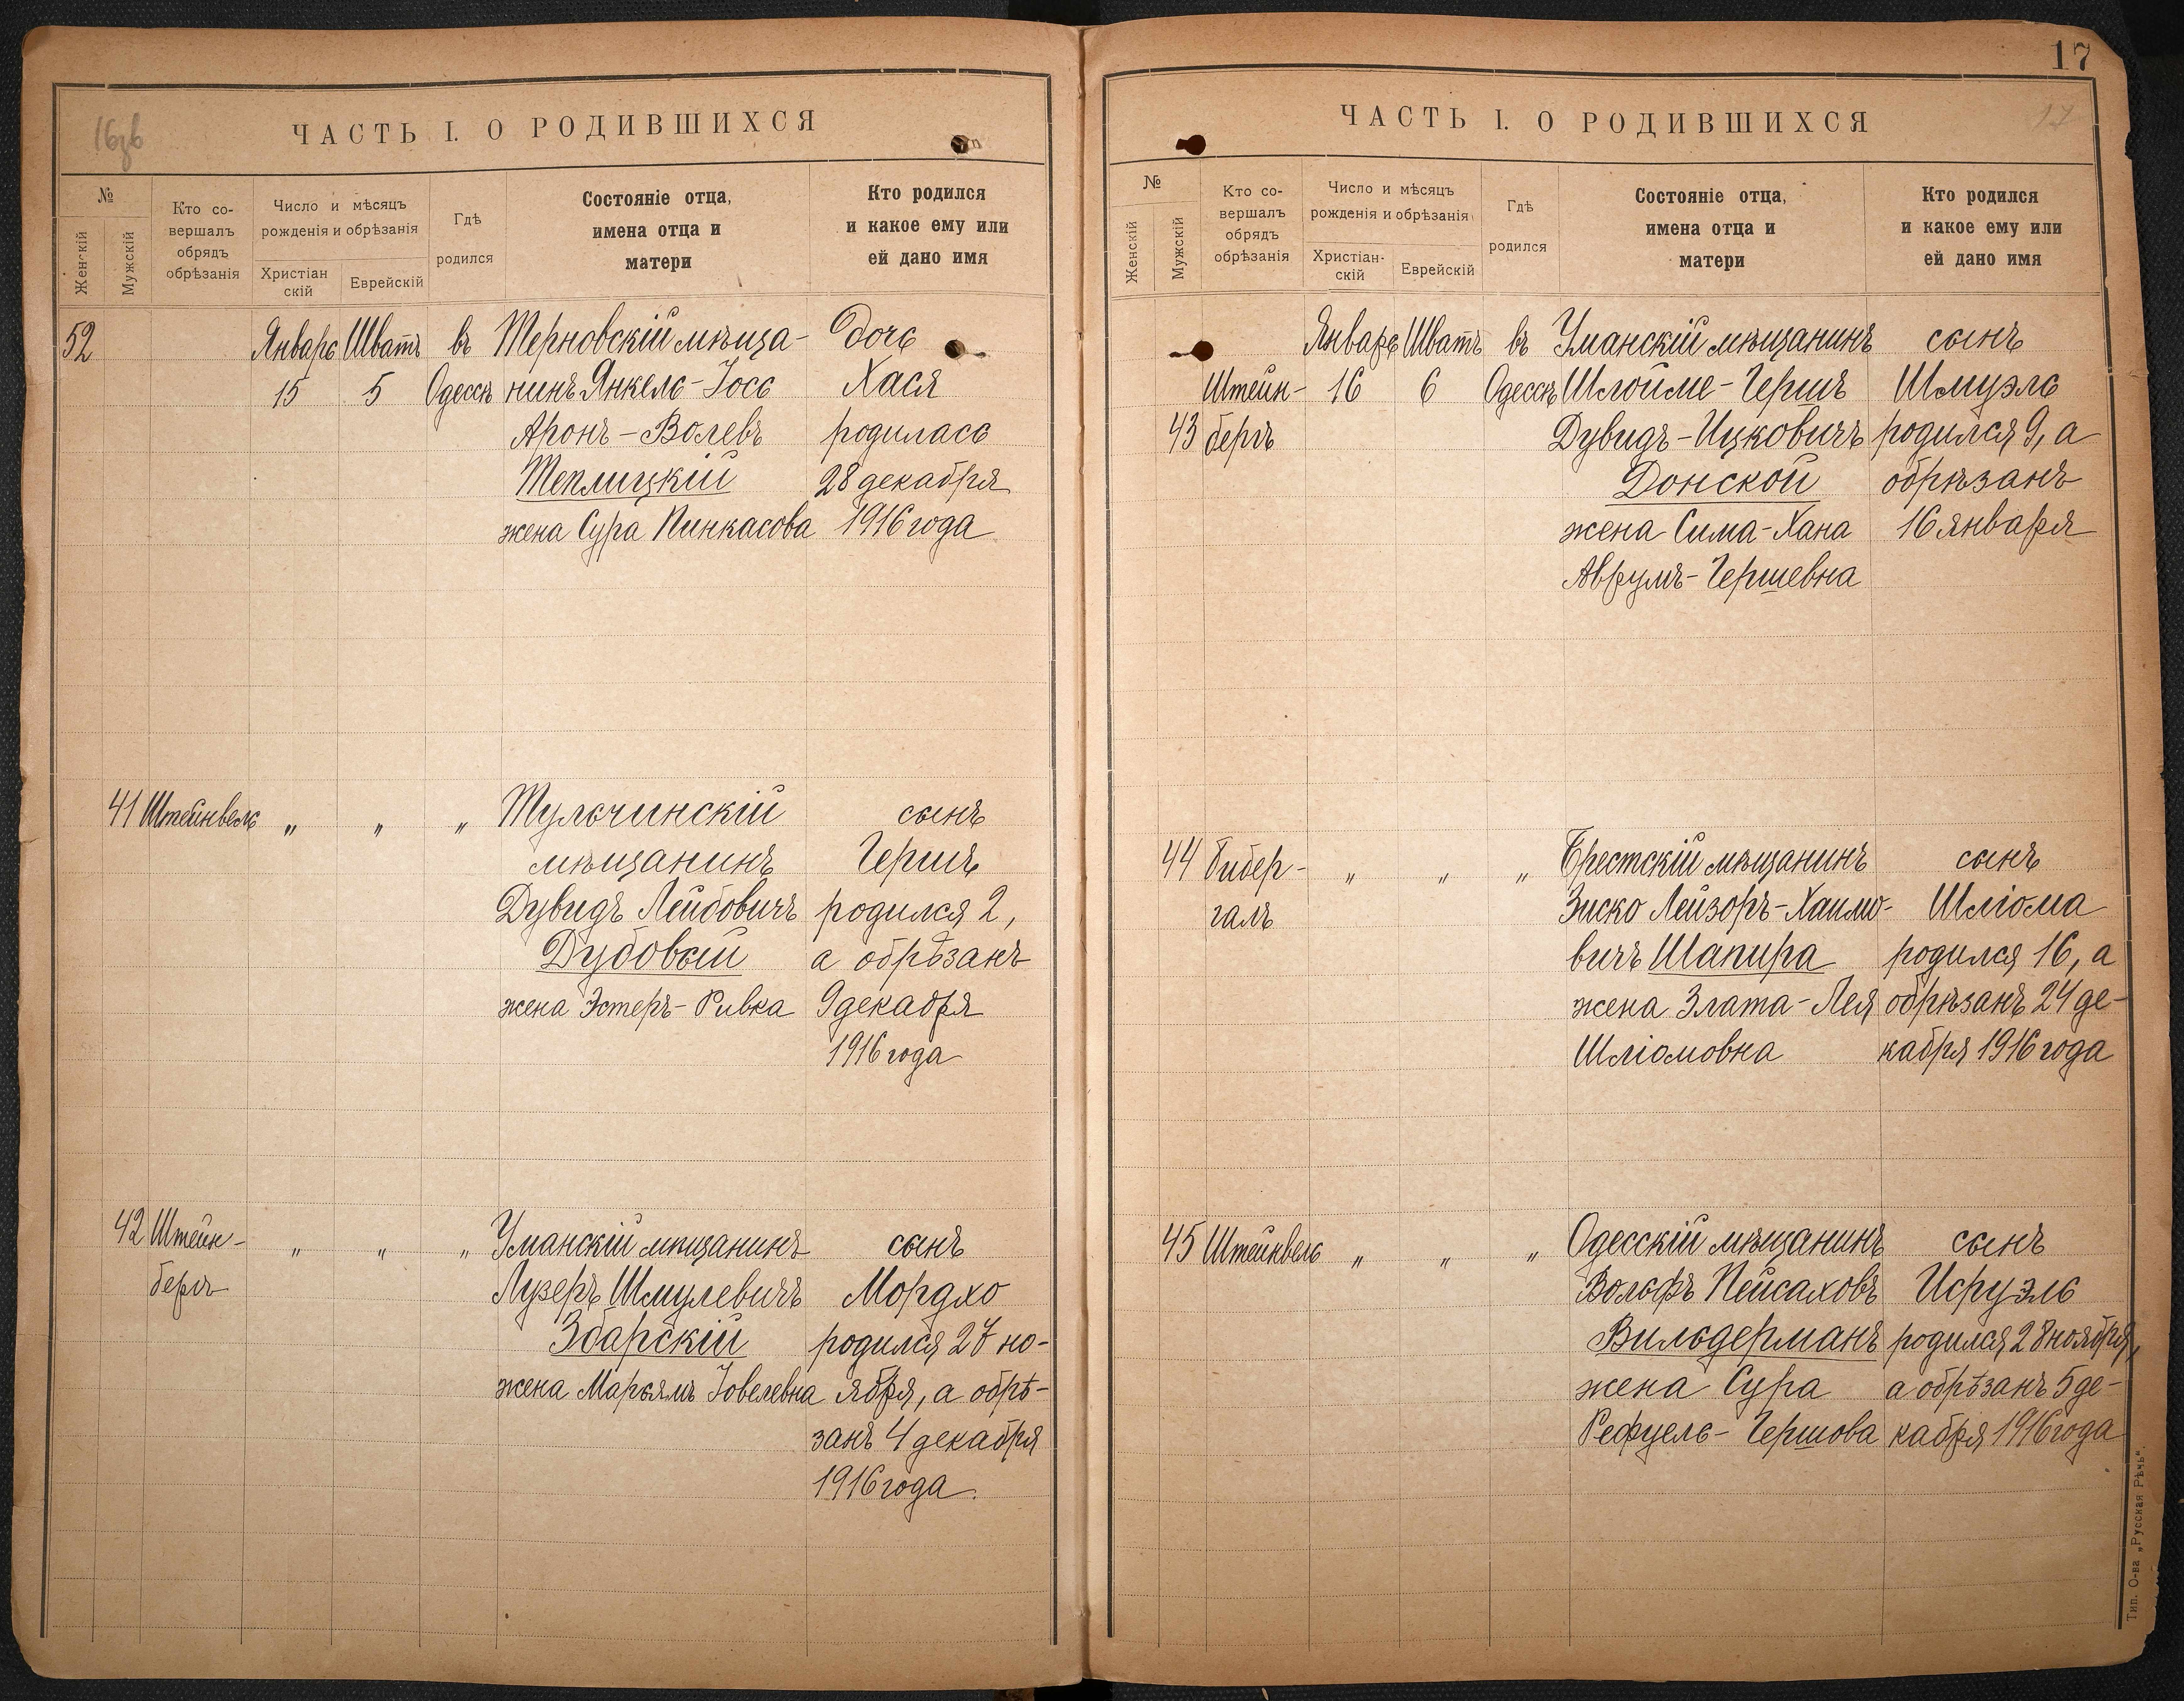 16об
ЧАСТЬ I. О РОДИВШИХСЯ
№
Женскій
Мужскій
Кто со-
вершалъ
обрядъ
обрѣзанія
Число и мѣсяцъ
рожденія и обрѣзанія
Христіан
скій
Еврейскій
Гдѣ
родился
Состояніе отца,
имена отца и
матери
Кто родился
и какое ему или
ей дано имя
52 Январь Шватъ въ Терновскій мѣща- дочь
15 5 Одессѣ нинъ Янкель-Іось Хася
Аронъ-Волевъ родилась
Теплицкій 28 декабря
жена Сура Пинкасова 1916 года
41 Штейнвель " " " Тульчинскій сынъ
мѣщанинъ Гершъ
Дувидъ Лейбовичъ родился 2,
Дубовый а обрѣзанъ
жена Эстеръ-Ривка 9 декабря
1916 года
42 Штейн- " " " Уманскій мѣщанинъ сынъ
бергъ Лузеръ Шмулевичъ Мордхо
Збарскій родился 27 но-
жена Марьямъ Іовелевна ября, а обрѣ-
занъ 4 декабря
1916 года.
17
17
ЧАСТЬ I. О РОДИВШИХСЯ
№
Женскій
Мужскій
Кто со-
вершалъ
обрядъ
обрѣзанія
Число и мѣсяцъ
рожденія и обрѣзанія
Христіан-
скій
Еврейскій
Гдѣ
родился
Состояніе отца,
имена отца и
матери
Кто родился
и какое ему или
ей дано имя
Январь Шватъ въ Уманскій мѣщанинъ сынъ
Штейн- 16 6 Одессѣ Шлойме-Гершъ Шмуэль
43 бергъ Дувидъ-Ицковичъ родился 9, а
Донской обрѣзанъ
жена Сима-Хана 16 января
Аврумъ-Гершевна
44 Бибер- " " " Брестскій мѣщанинъ сынъ
галъ Зиско Лейзоръ-Хаимо- Шліома
вичъ Шапира родился 16, а
жена Злата-Лея обрѣзанъ 24 де-
Шліомовна кабря 1916 года
45 Штейнвель " " " Одесскій мѣщанинъ сынъ
Вольфъ Пейсаховъ Исруэль
Вильдерманъ родился 28 ноября,
жена Сура а обрѣзанъ 5 де-
Рефуель-Гершова кабря 1916 года
Тип. О-ва „Русская Рѣчь".